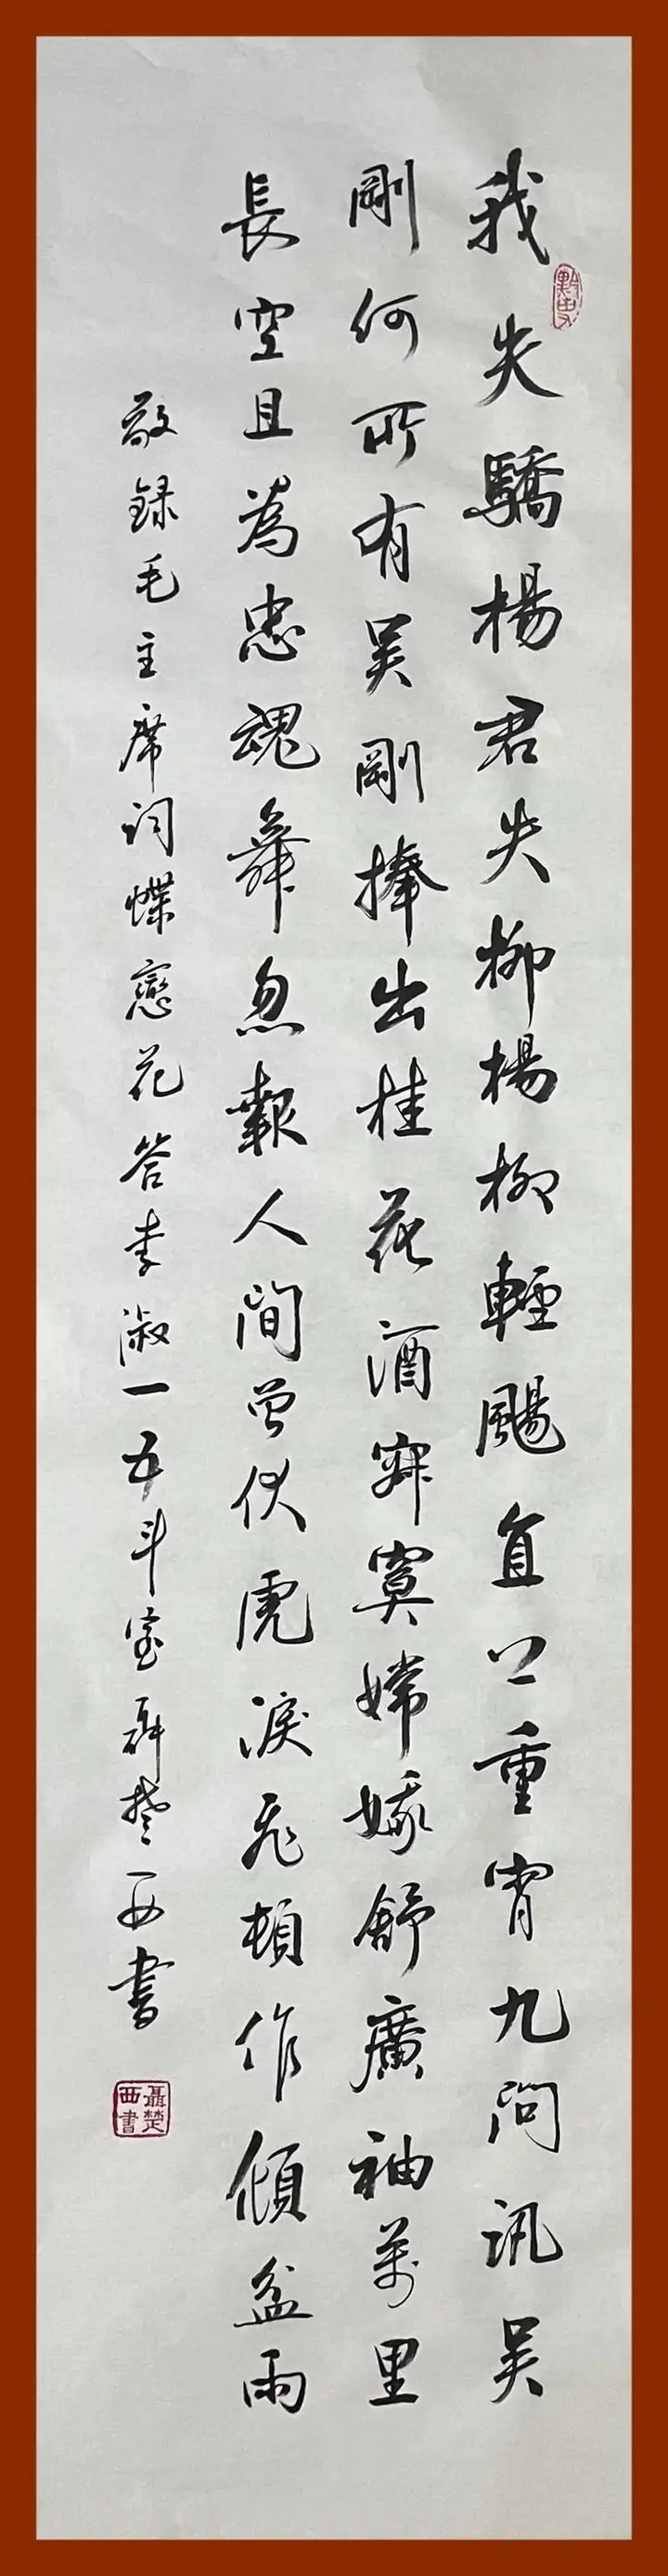 我失驕楊君失柳楊柳輕颺直上重霄九問訊吳
剛何所有吳剛捧出桂花酒寂寞嫦娥舒廣袖萬里
長空且為忠魂舞忽報人間曾伏虎淚飛頓作傾盆雨
敬録毛主席詞蝶戀花答李淑一五斗室聶楚西書
聶楚
西書